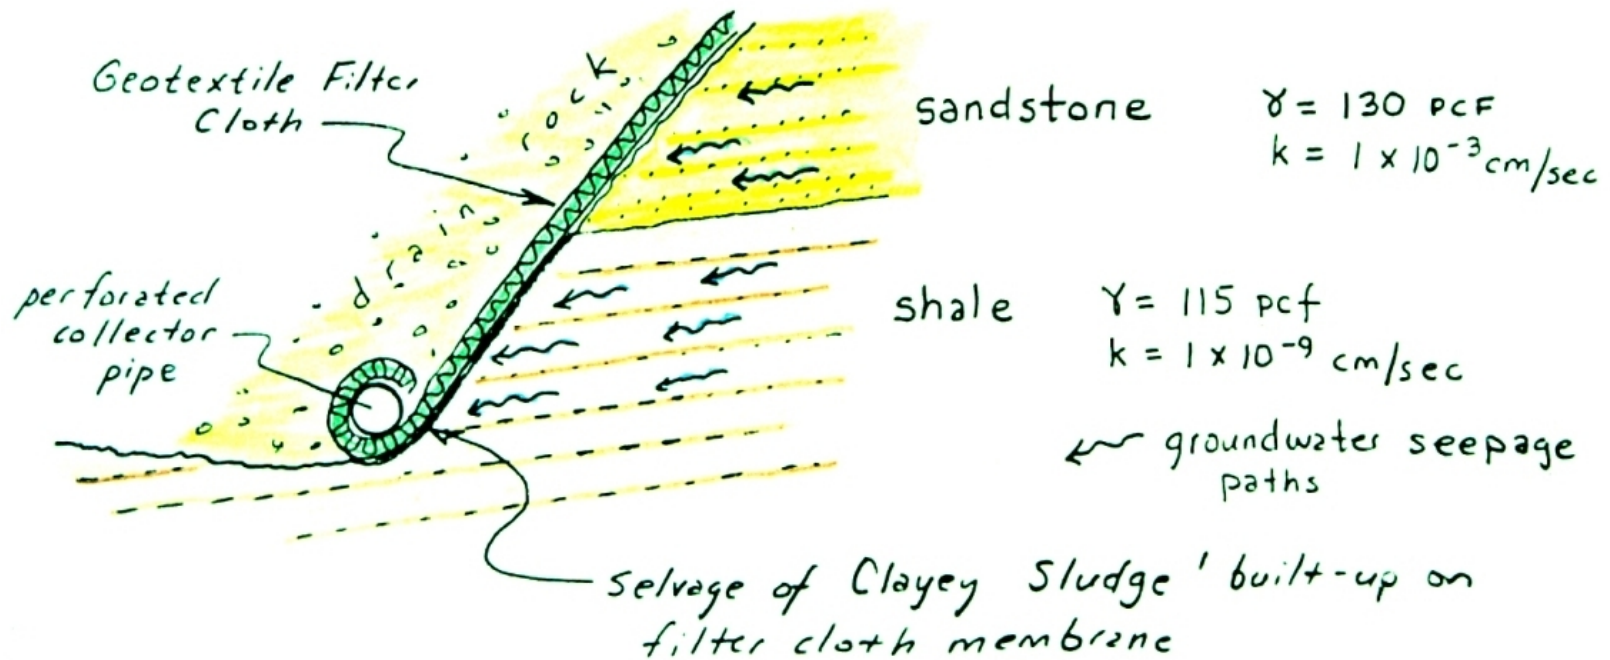 Geotextile Filter
Cloth
drain rock
perforated
collector
pipe
sandstone
γ = 130 PCF
k = 1 x 10⁻³ cm/sec
shale
γ = 115 pcf
k = 1 x 10⁻⁹ cm/sec
groundwater seepage
paths
selvage of Clayey Sludge ' built-up on
filter cloth membrane